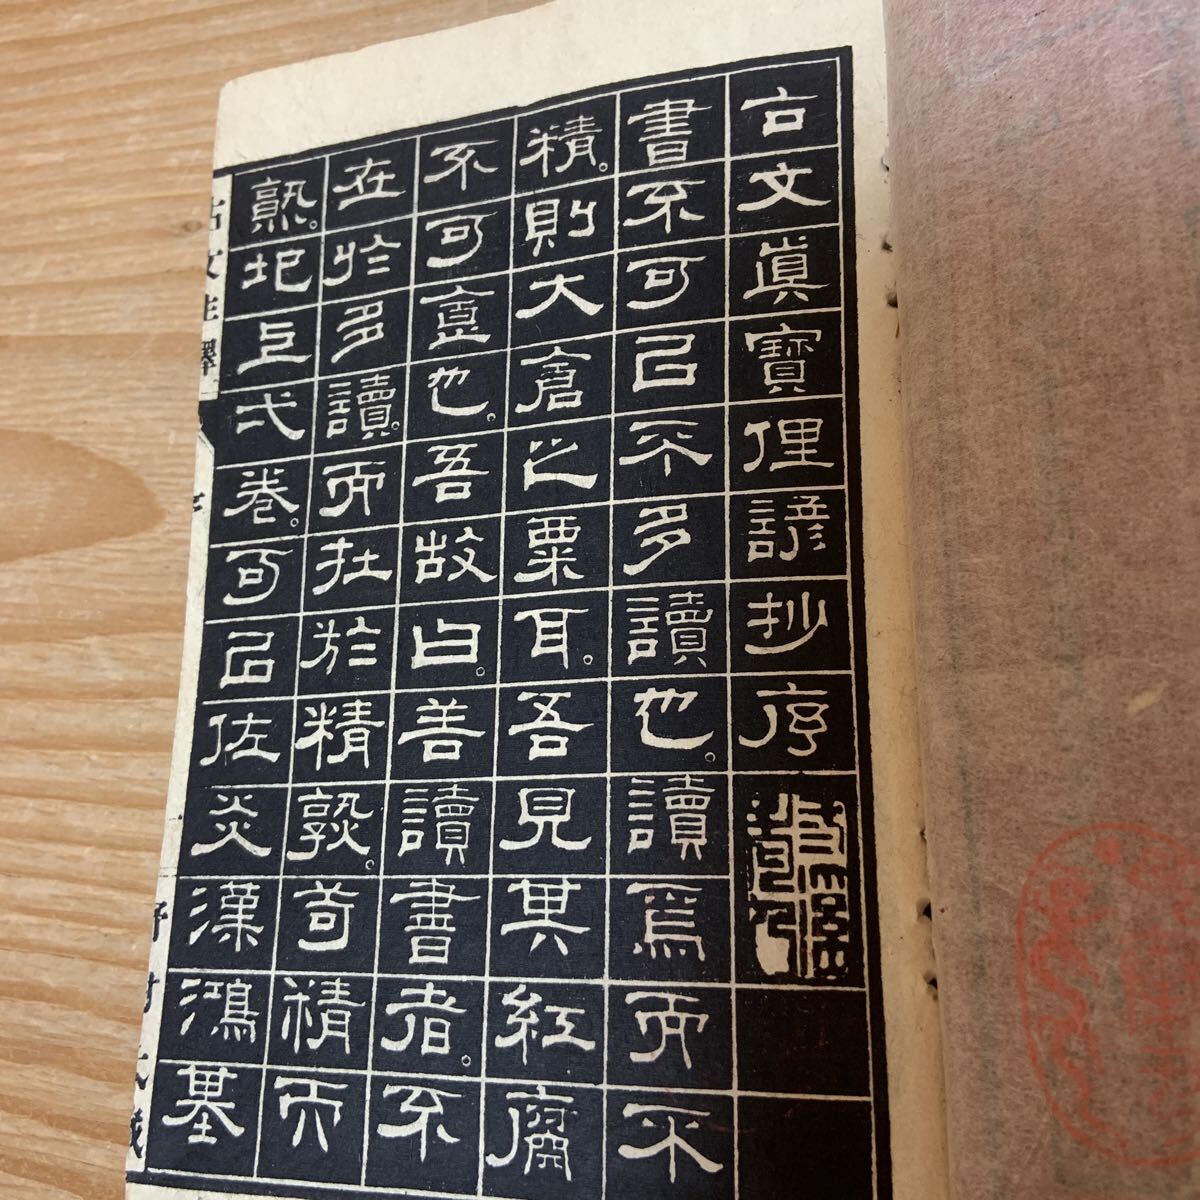 古文眞寶俚諺抄序
書不可㠯不多讀也。讀焉而不
精。則大倉之粟耳。吾見其紅腐
不可也。吾故曰。善讀書者。不
在於多讀。而在於精熟。苟精而
熟。圯上弌卷。可㠯佐炎漢鴻基